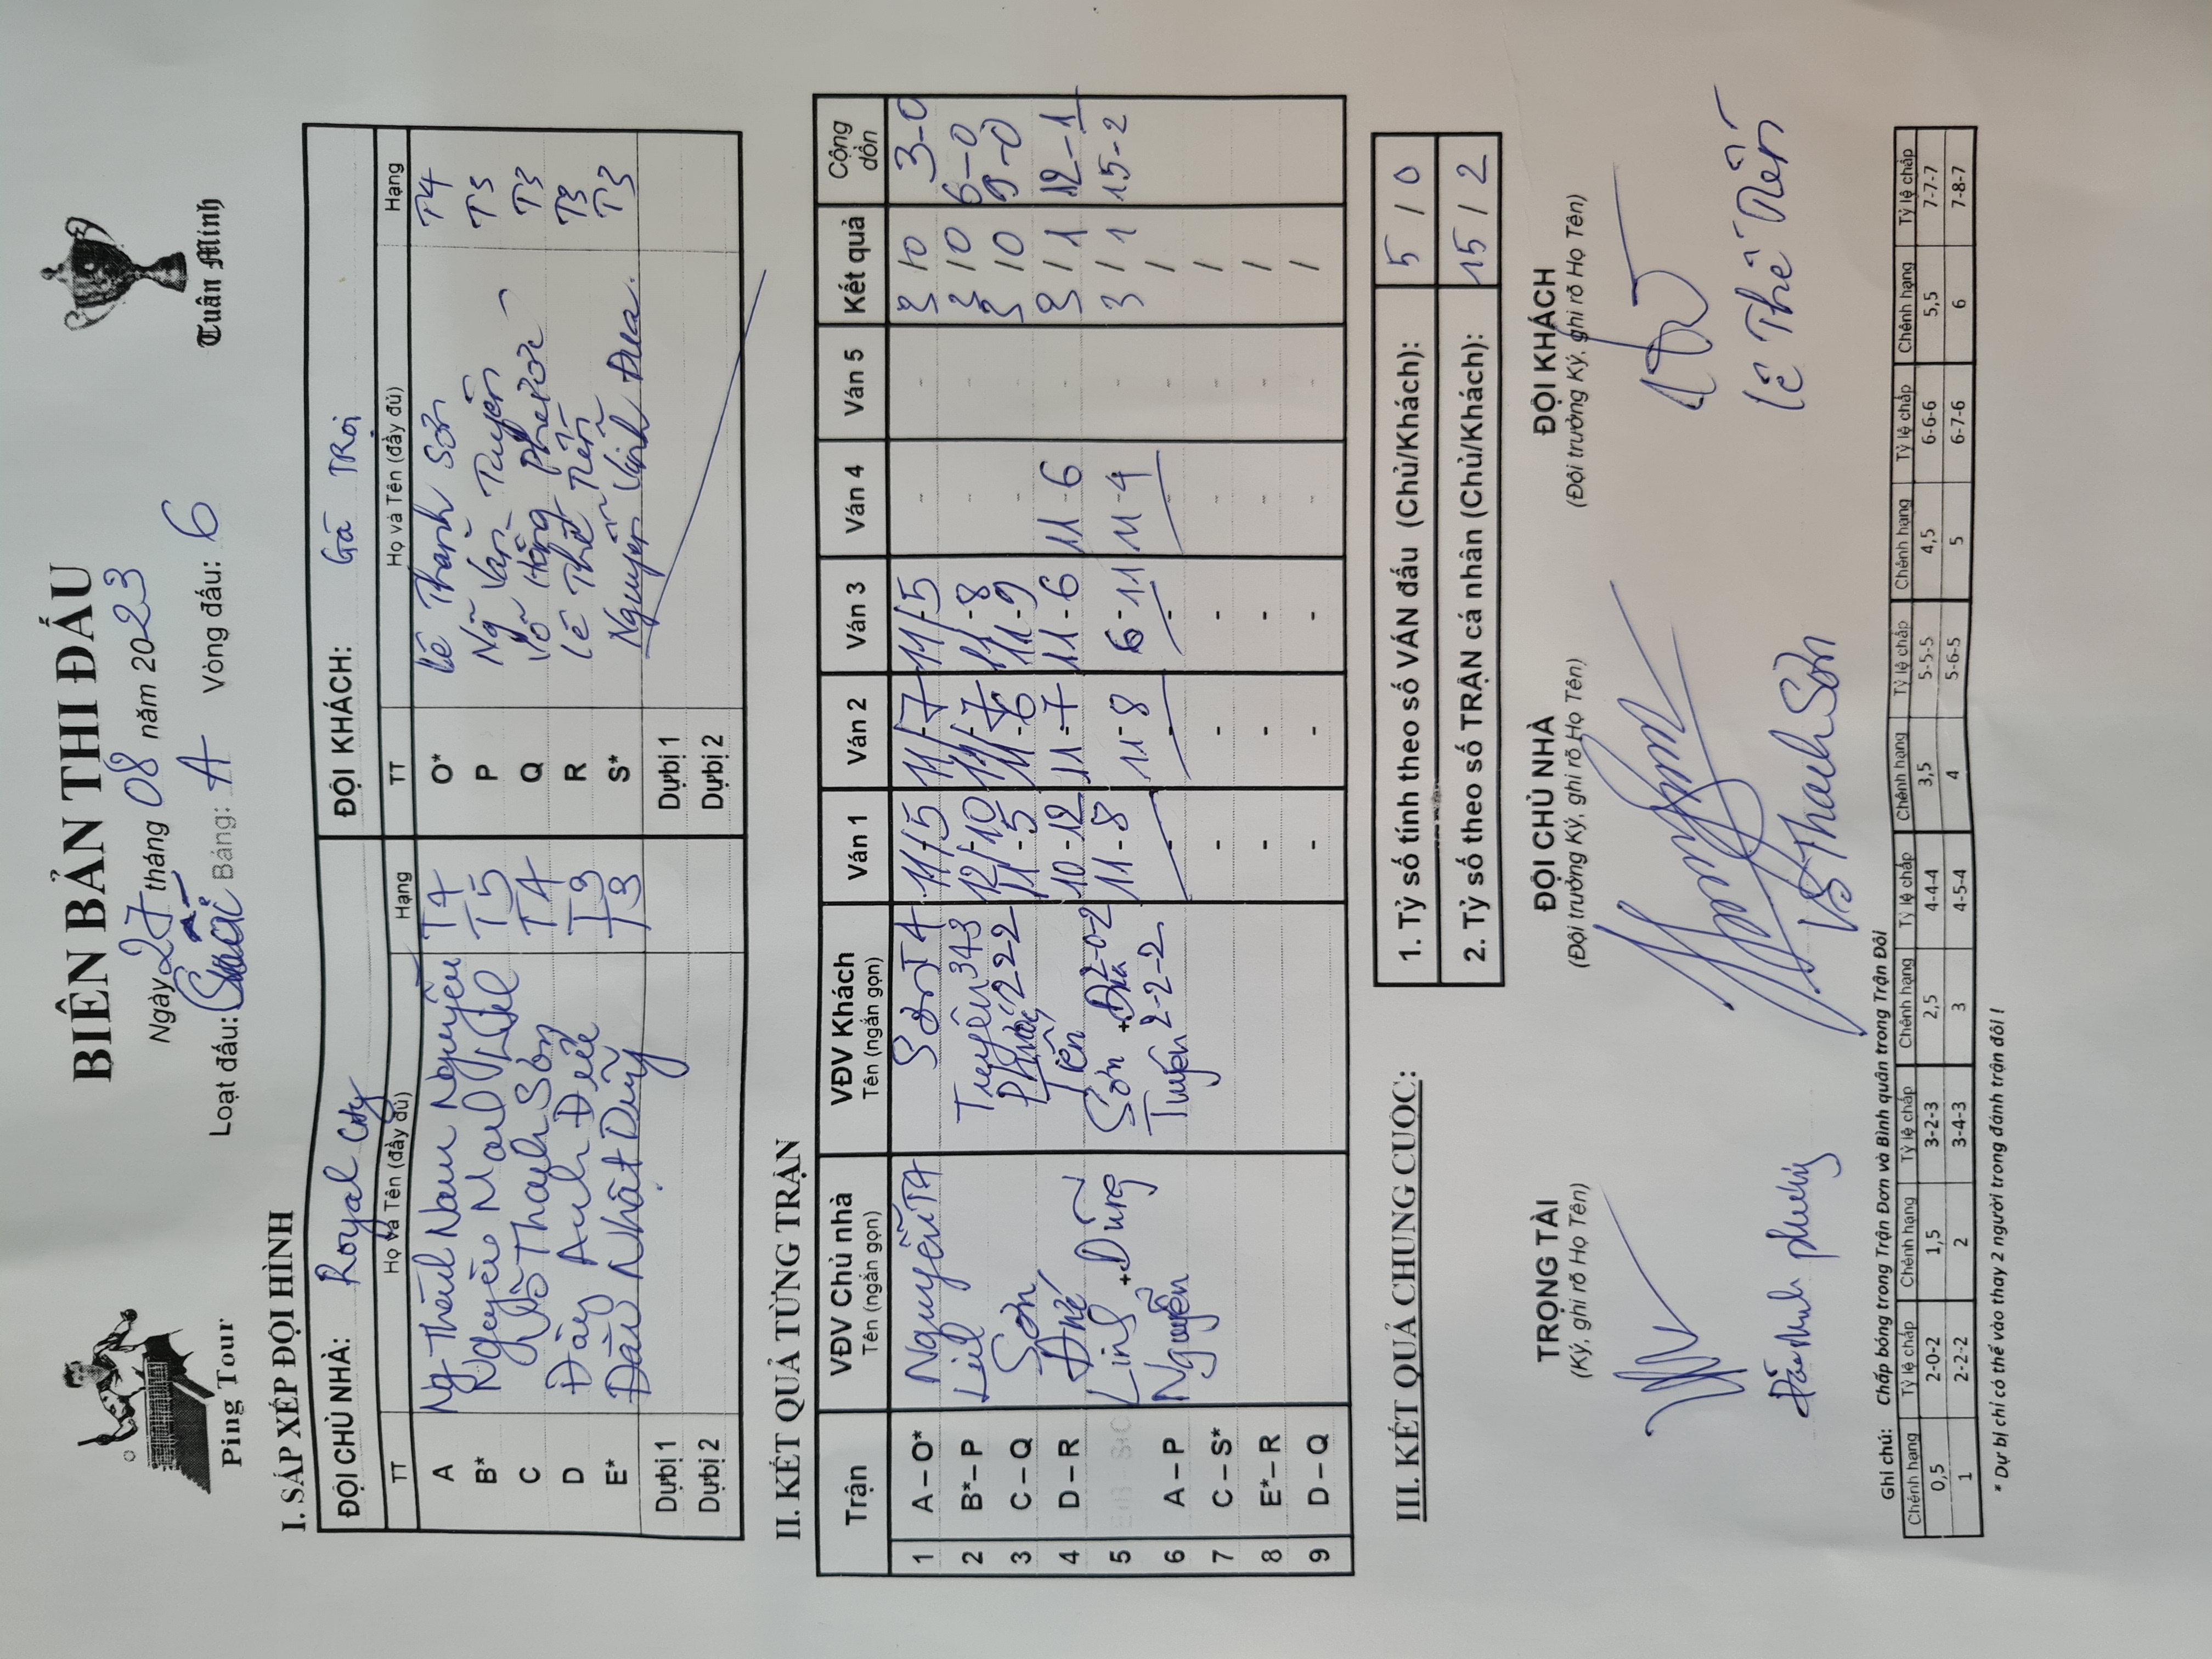 BIÊN BẢN THI ĐẤU
Ping Tour
Tuân Minh
Ngày 27 tháng 08 năm 2023
Loạt đấu: Bảng: A Vòng đấu: 6
I. SẮP XẾP ĐỘI HÌNH
ĐỘI CHỦ NHÀ: Royal City ĐỘI KHÁCH: Gà TRòi
TT Họ và Tên (đầy đủ) Hạng TT Họ và Tên (đầy đủ) Hạng
A Ng Thành Nam Nguyên T4 O* Lê Thanh Sơn T4
B* Nguyễn T5 P Ng Văn Tuyên T3
C Võ Thanh Sơn T4 Q Võ Hồng Phước T3
D Đào Anh T3 R Lê Thế Tiến T3
E* Đào Nhật Dũng T3 S* Nguyễn Vinh Đua T3
Dự bị 1 Dự bị 1
Dự bị 2 Dự bị 2
II. KẾT QUẢ TỪNG TRẬN
Trận VĐV Chủ nhà VĐV Khách Ván 1 Ván 2 Ván 3 Ván 4 Ván 5 Kết quả Cộng dồn
Tên (ngắn gọn) Tên (ngắn gọn)
1 A – O* Nguyên T4 Sơn T4 11-5 11-7 11-5 - - 3 / 0 3-0
2 B* – P Tuyên 343 12-10 11-7 11-8 - - 3 / 0 6-0
3 C – Q Sơn Phước 222 11-5 11-6 11-9 - - 3 / 0 9-0
4 D – R Tiến 10-12 11-7 11-6 11-6 - 3 / 1 12-1
5 + Dũng Sơn + Đua 2-0-2 11-8 11-8 6-11 11-4 - 3 / 1 15-2
6 A – P Nguyên Tuyên 2-2-2 - - - - - /
7 C – S* - - - - - /
8 E* – R - - - - - /
9 D – Q - - - - - /
III. KẾT QUẢ CHUNG CUỘC:
1. Tỷ số tính theo số VÁN đấu (Chủ/Khách): 5 / 0
2. Tỷ số theo số TRẬN cá nhân (Chủ/Khách): 15 / 2
TRỌNG TÀI ĐỘI CHỦ NHÀ ĐỘI KHÁCH
(Ký, ghi rõ Họ Tên) (Đội trưởng Ký, ghi rõ Họ Tên) (Đội trưởng Ký, ghi rõ Họ Tên)
Võ Thanh Sơn Lê Thế Tiến
Ghi chú: Chấp bóng trong Trận Đơn và Bình quân trong Trận Đôi
Chênh hạng Tỷ lệ chấp Chênh hạng Tỷ lệ chấp Chênh hạng Tỷ lệ chấp Chênh hạng Tỷ lệ chấp Chênh hạng Tỷ lệ chấp Chênh hạng Tỷ lệ chấp
0,5 2-0-2 1,5 3-2-3 2,5 4-4-4 3,5 5-5-5 4,5 6-6-6 5,5 7-7-7
1 2-2-2 2 3-4-3 3 4-5-4 4 5-6-5 5 6-7-6 6 7-8-7
* Dự bị chỉ có thể vào thay 2 người trong đánh trận đôi !